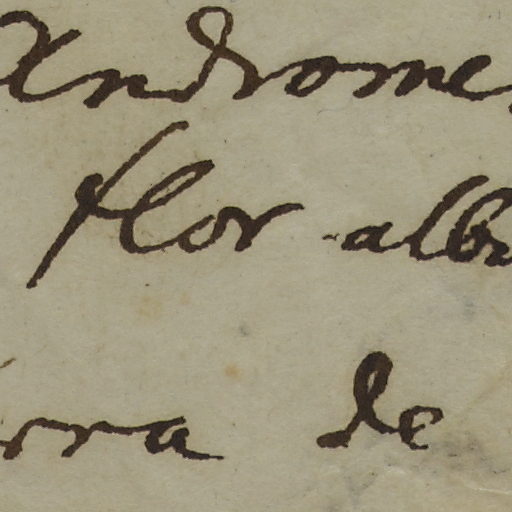 Androme
flor alb
rra de